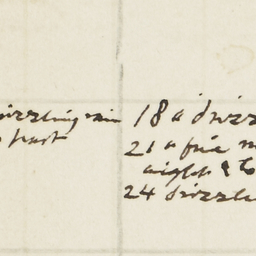 drizzling rain
frost
18 a drizz
21 a fine m
night & b
24 drizzle